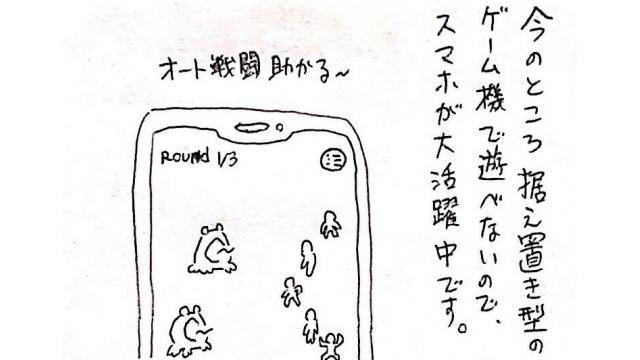 今のところ据え置き型の
ゲーム機で遊べないので、
スマホが大活躍中です。
オート戦闘助かる〜
Round 1/3